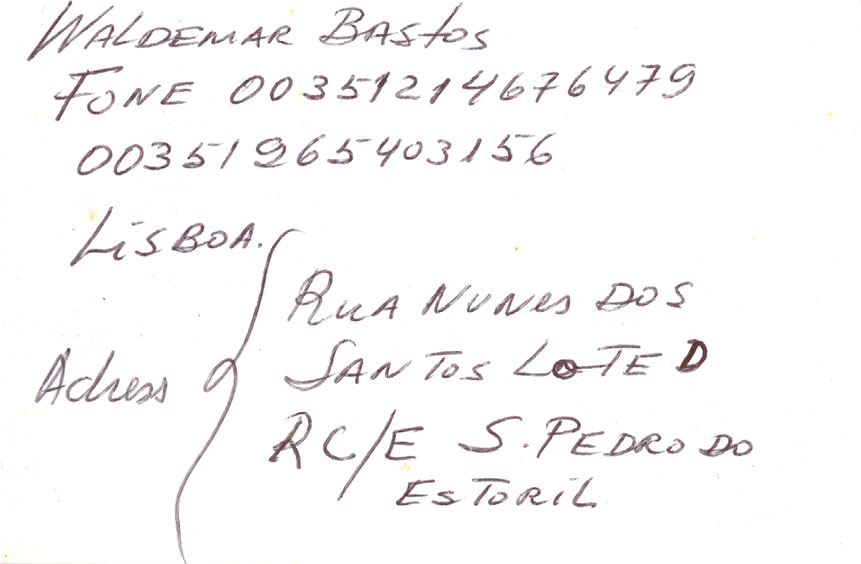 WALDEMAR BASTOS
FONE 00351214676479
00351965403156
LISBOA.
Adress
RUA NUNES DOS
SANTOS LOTE D
RC/E S. PEDRO DO
ESTORIL